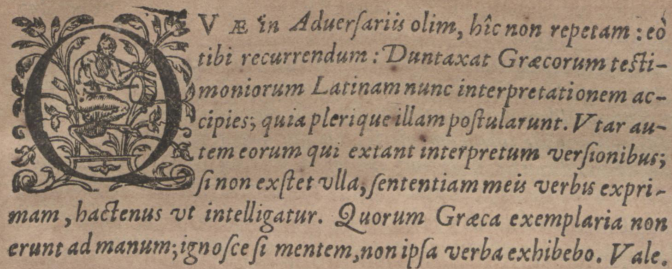 QVÆ in Adverſariis olim, hîc non repetam : eò
tibi recurrendum : Duntaxat Græcorum teſti-
moniorum Latinam nunc interpretationem ac-
cipies; quia plerique illam poſtularunt. Vtar au-
tem eorum qui extant interpretum verſionibus;
ſi non exſtet vlla, ſententiam meis verbis expri-
mam, hactenus vt intelligatur. Quorum Græca exemplaria non
erunt ad manum; ignoſce ſi mentem, non ipſa verba exhibebo. Vale.